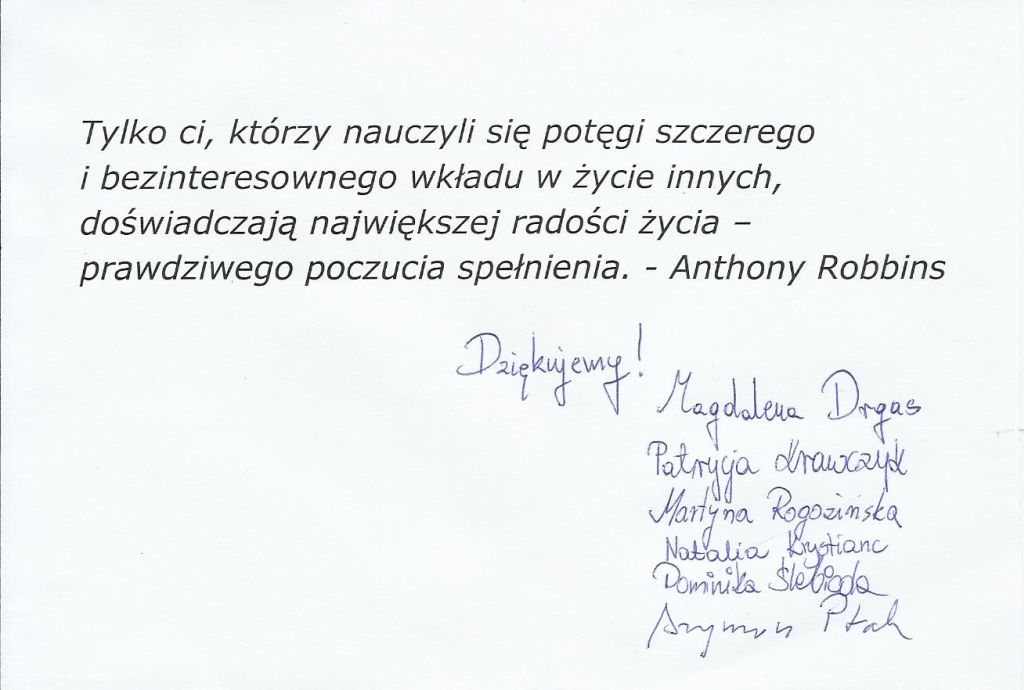 Tylko ci, którzy nauczyli się potęgi szczerego
i bezinteresownego wkładu w życie innych,
doświadczają największej radości życia –
prawdziwego poczucia spełnienia. - Anthony Robbins
Dziękujemy!
Magdalena Drgas
Patrycja Krawczyk
Martyna Rogozińska
Natalia Krystianc
Dominika Ślebioda
Szymon Ptak